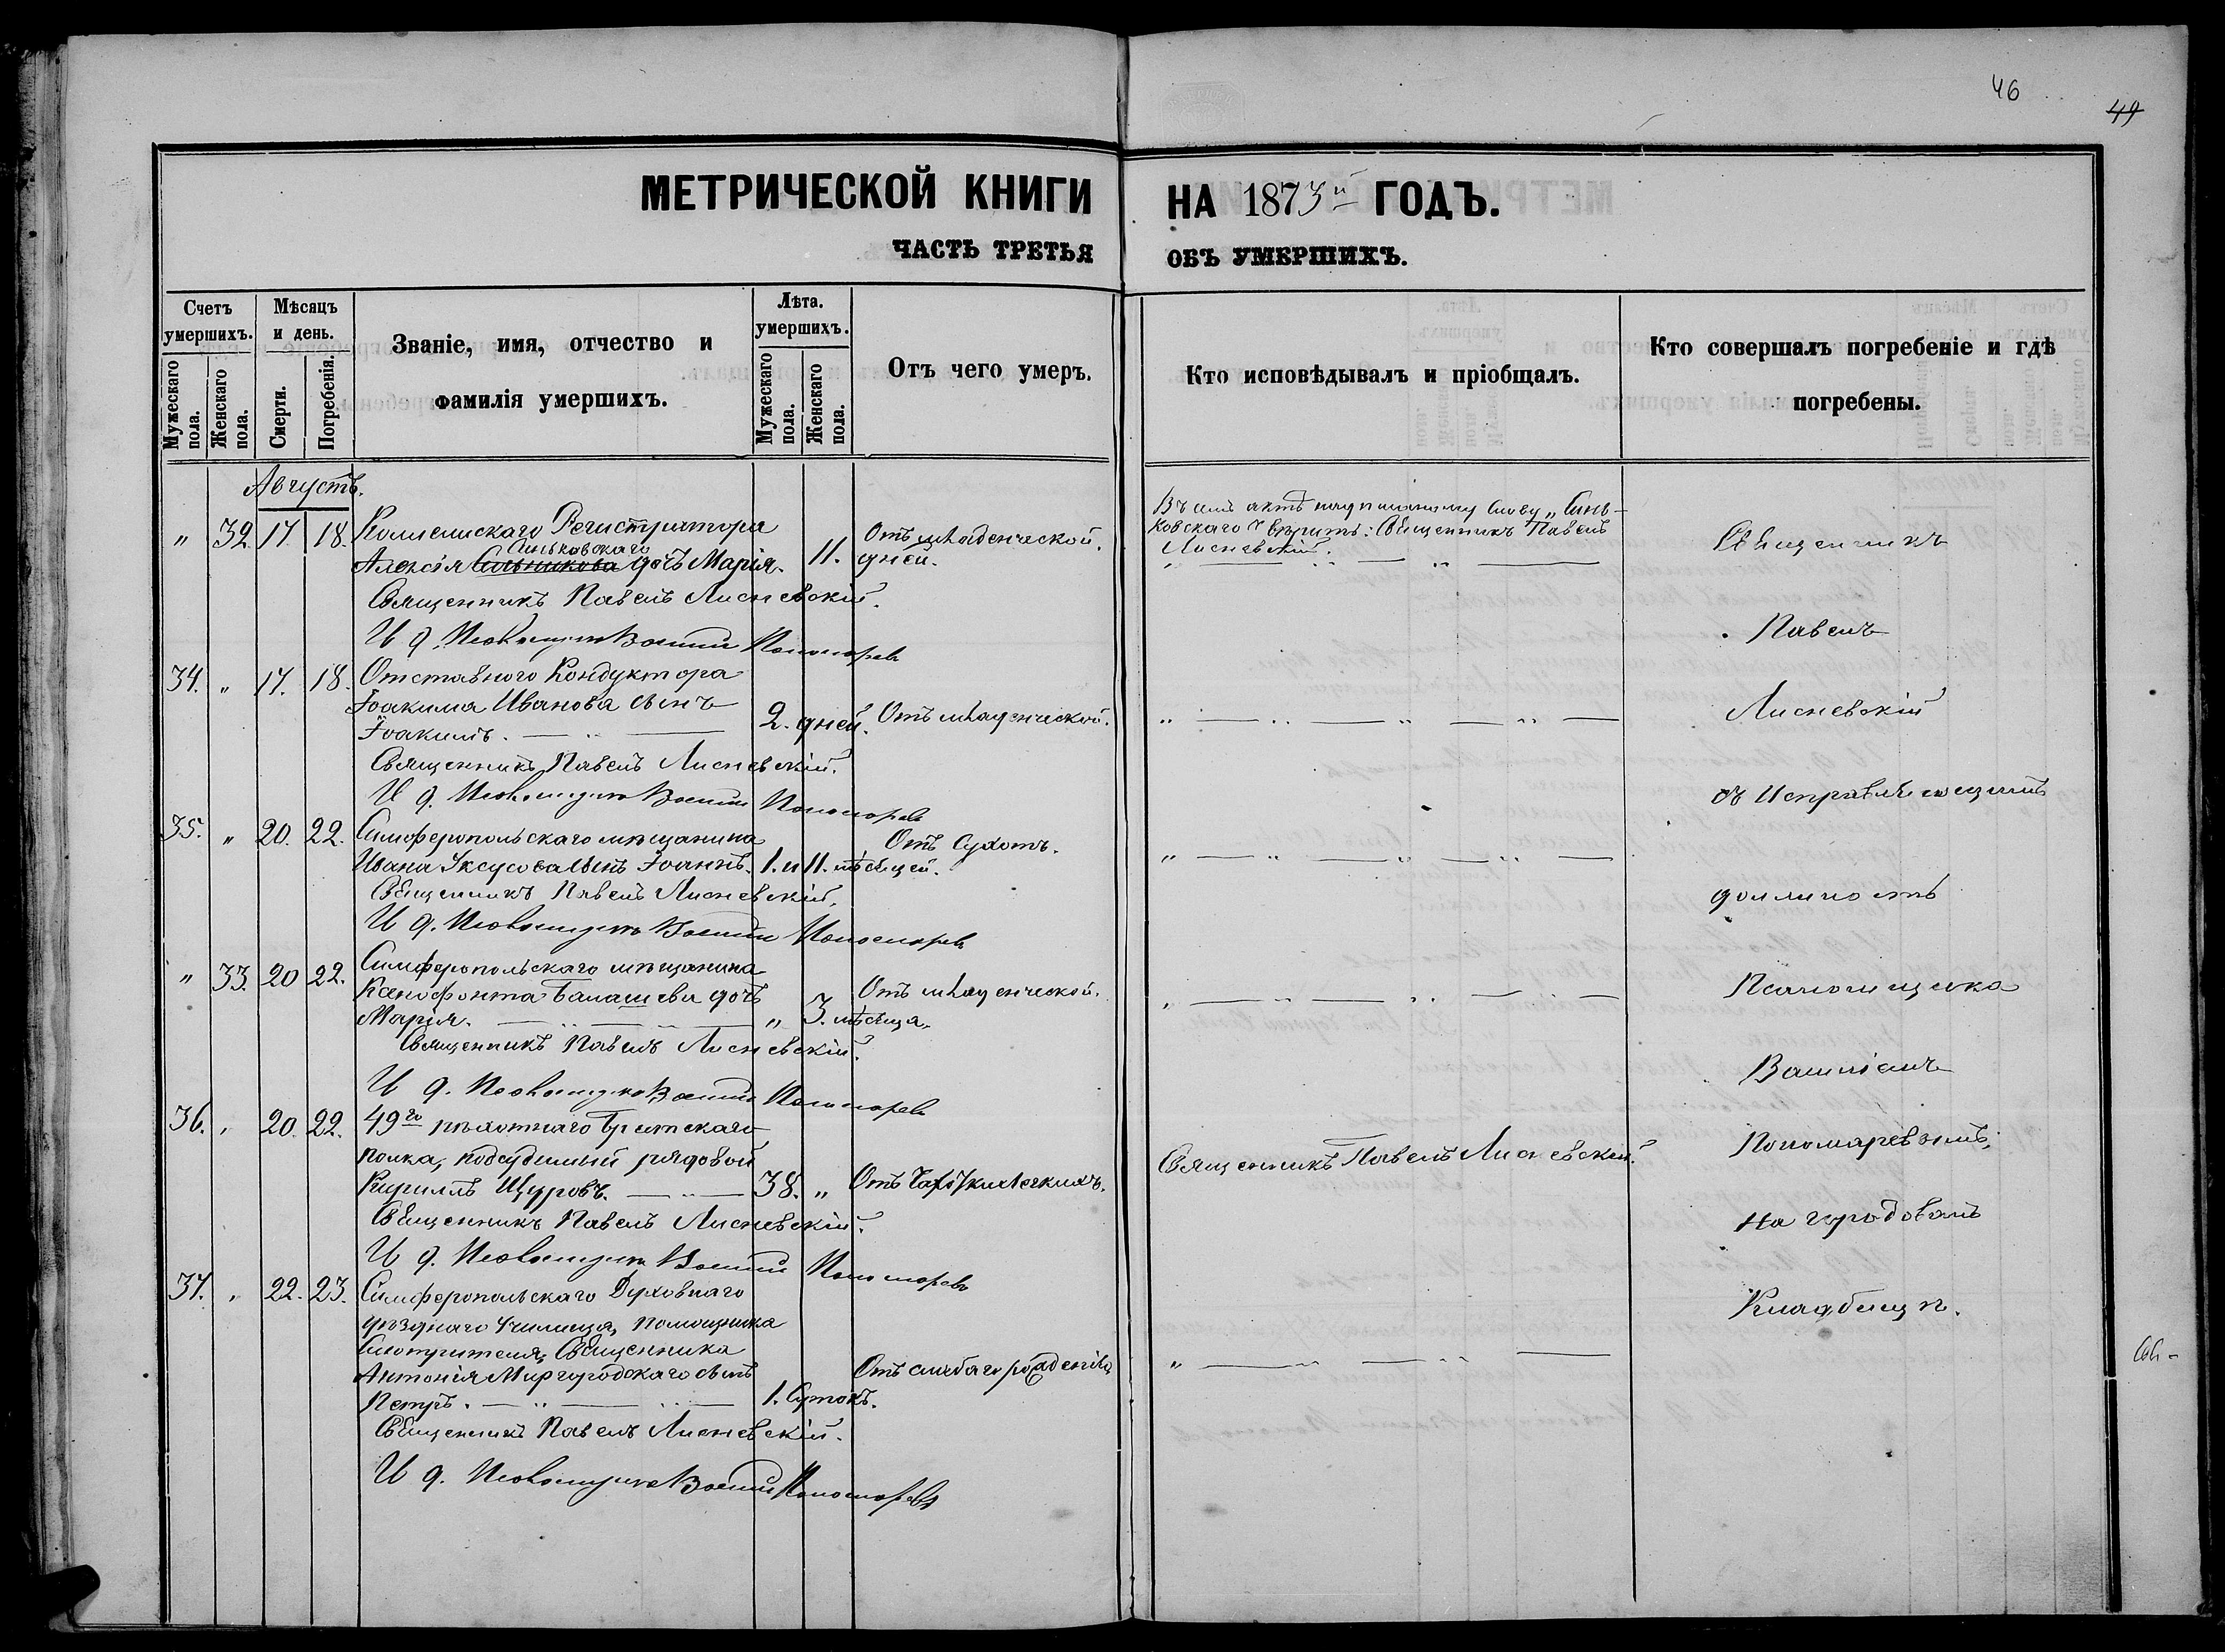 46
49
МЕТРИЧЕСКОЙ КНИГИ НА 1873й ГОДЪ.
ЧАСТЬ ТРЕТЬЯ ОБЪ УМЕРШИХЪ.
Счетъ умершихъ.
Мужескаго пола.
Женскаго пола.
Мѣсяцъ и день.
Смерти.
Погребенія.
Званіе, имя, отчество и
фамилія умершихъ.
Лѣта. умершихъ.
Мужескаго пола.
Женскаго пола.
Отъ чего умеръ.
Кто исповѣдывалъ и пріобщалъ.
Кто совершалъ погребеніе и гдѣ
погребены.
Августъ.
" 32. 17. 18. Коллежскаго Регистратора
Синьковскаго
Алексія Сальникова дочь Марія. 11. дней. Отъ младенческой.
Въ семъ актѣ надписанному слову „Синь-
ковскаго" вѣрить: Священникъ Павелъ
Лисневскій.
Священникъ Павелъ Лисневскій.
И д. Псаломщика Василий Пономарев
34. " 17. 18. Отставного Кондуктора
Іоакима Иванова сынъ
Іоакимъ. 2. дней. Отъ младенческой.
Священникъ Павелъ Лисневскій.
И д. Псаломщика Василий Пономарев
35. " 20. 22. Симферопольскаго мѣщанина
Ивана Уксусова сынъ Іоаннъ. 1. и 11. мѣсяцей. Отъ Сухотъ.
Священникъ Павелъ Лисневскій.
И д. Псаломщика Василий Пономарев
" 33. 20 22. Симферопольскаго мѣщанина
Ксенофонта Балашева дочь
Марія. " 3. мѣсяца. Отъ младенческой.
Священникъ Павелъ Лисневскій.
И д. Псаломщика Василий Пономарев
36. " 20. 22. 49го пѣхотнаго Брестскаго
полка, подсудимый рядовой
Кириллъ Щуровъ. 38. " Отъ Чахотки легкихъ.
Священникъ Павелъ Лисневскій.
Священникъ Павелъ Лисневскій.
И д. Псаломщика Василий Пономарев
37. " 22. 23. Симферопольскаго Духовнаго
уѣзднаго Училища, помощника
Смотрителя, Священника
Антонія Миргородскаго сынъ
Петръ. 1. Сутокъ. Отъ слабаго рожденія
Священникъ Павелъ Лисневскій.
И д. Псаломщика Василий Пономарев
Священникъ
Павелъ
Лисневскій
съ Исправляющимъ
должность
Псаломщика
Василіемъ
Пономаревымъ,
на городовомъ
Кладбищѣ.